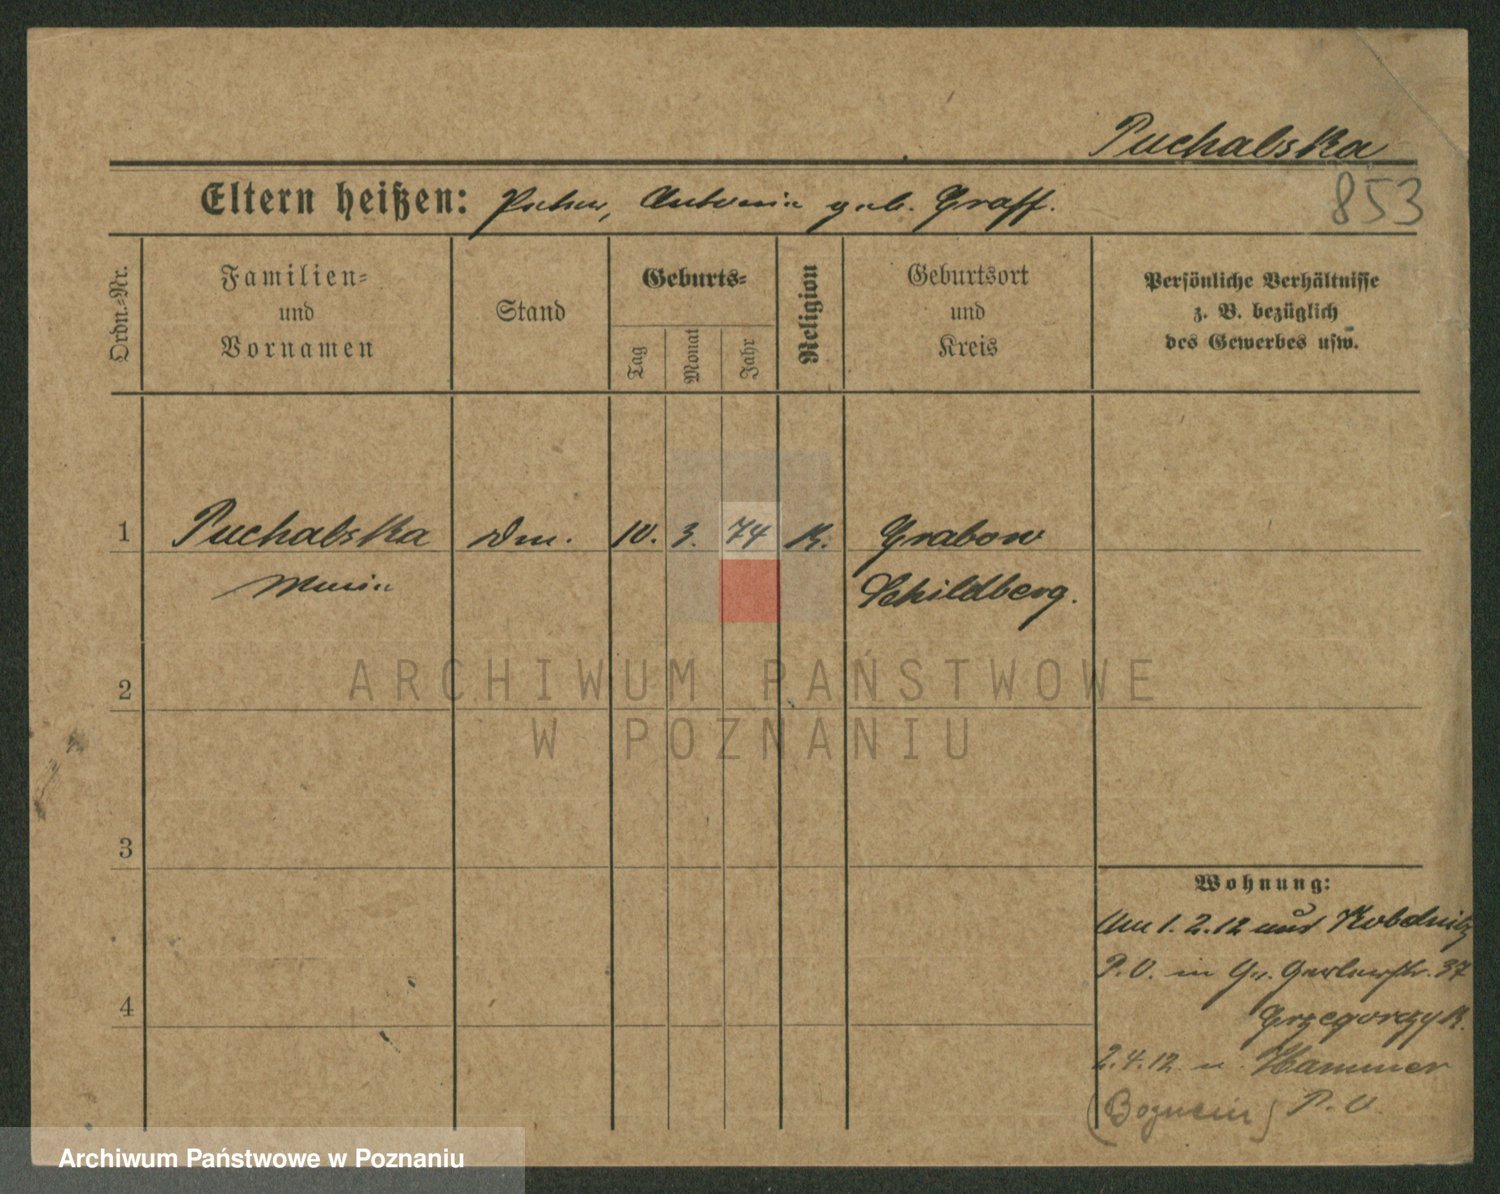 Puchalska
853
Eltern heißen: Peter, Antonie geb. Graff.
Ordn.-Nr.
Familien-
und
Vornamen
Stand
Geburts-
Tag
Monat
Jahr
Religion
Geburtsort
und
Kreis
Persönliche Verhältnisse
z. B. bezüglich
des Gewerbes usw.
1 Puchalska 10. 3. 74 K. Grabow
Maria Schildberg.
ARCHIWUM PAŃSTWOWE
W POZNANIU
2
3
4
Wohnung:
Am 1. 2. 12 aus Kobelnitz
P. O. in Gr. Gerberstr. 37
Grzegorczyk.
2. 4. 12. n. Hammer
P. O.
Archiwum Państwowe w Poznaniu